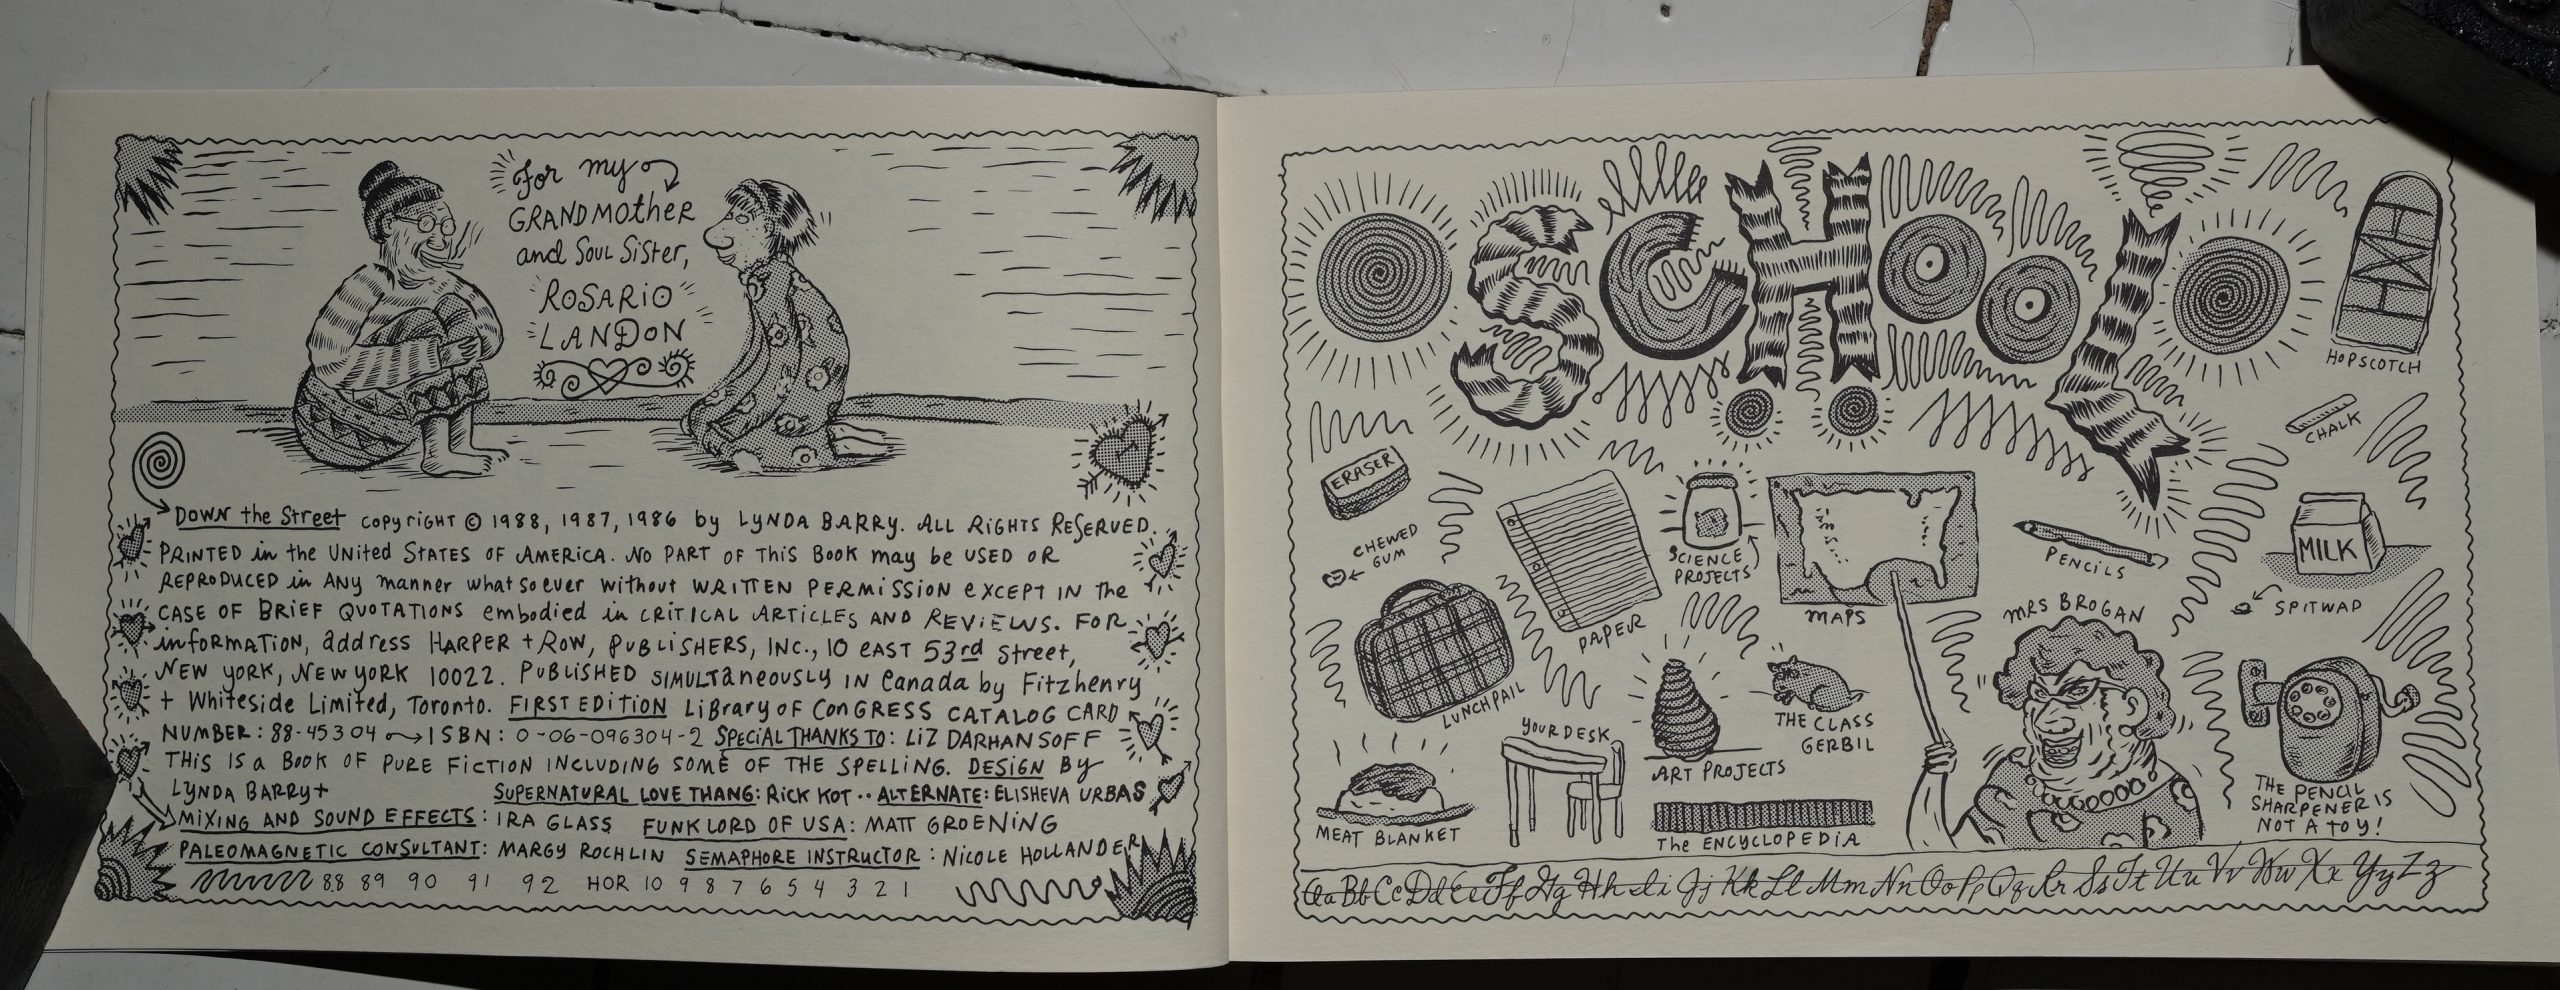 For my
GRANDMOther
and Soul Sister,
ROSARiO
LANDON
DOWN the Street copyright © 1988, 1987, 1986 by LYNDA BARRY. ALL RiGHTS ReSeRVED.
PRINTED in the UNiTed STATES OF AMERICA. NO PART OF THiS BOOK may be USED OR
REPRODUCED in ANY manner whatsoever without WRITTEN PERMiSSiON eXCEPT IN the
CASE OF BRiEF QUOTATIONS embodied in CRiTiCAL ARTiCLES AND REViEWS. FOR
inFORMATiON, address HARPER + ROW, PUBLiSHERS, INC., 10 eAST 53rd Street,
NEW yORK, NEW yORK 10022. PUBLiSHED SiMULTaneously IN Canada by Fitzhenry
+ Whiteside Limited, Toronto. FIRST EDITION LiBrary OF ConGRESS CATALOG CARD
NUMBER: 88-45304 ISBN: 0-06-096304-2 SPECiAL THANKS TO: LiZ DARHANSOFF
THiS IS a BOOK OF PURE FiCTiON INCLUDiNG SOME OF THE SPELLiNG. DESiGN By
LYNDA BARRY+ SUPERNATURAL LOVE THANG: RiCK KOT ·· ALTERNATE: ELiSHEVA URBAS
MiXiNG AND SOUND EFFECTS: IRA GLASS FUNK LORD OF USA: MATT GROENiNG
PALEOMAGNETIC CONSULTANT: MARGY ROCHLIN SEMAPHORE INSTRUCTOR: NiCOLE HOLLANDER
88 89 90 91 92 HOR 10 9 8 7 6 5 4 3 2 1
SCHOOL
HOPSCOTCH
CHALK
ERASER
CHEWED
GUM
PAPER
SCiENCE
PROJECTS
MAPS
PENCiLS
MILK
SPITWAD
MRS BROGAN
LUNCHPAIL
YOUR DESK
ART PROJECTS
THE CLASS
GERBIL
MEAT BLANKET
The ENCYCLOPEDiA
THE PENCIL
SHARPENER IS
NOT A TOY!
Aa Bb Cc Dd Ee Ff Gg Hh Ii Jj Kk Ll Mm Nn Oo Pp Qq Rr Ss Tt Uu Vv Ww Xx Yy Zz